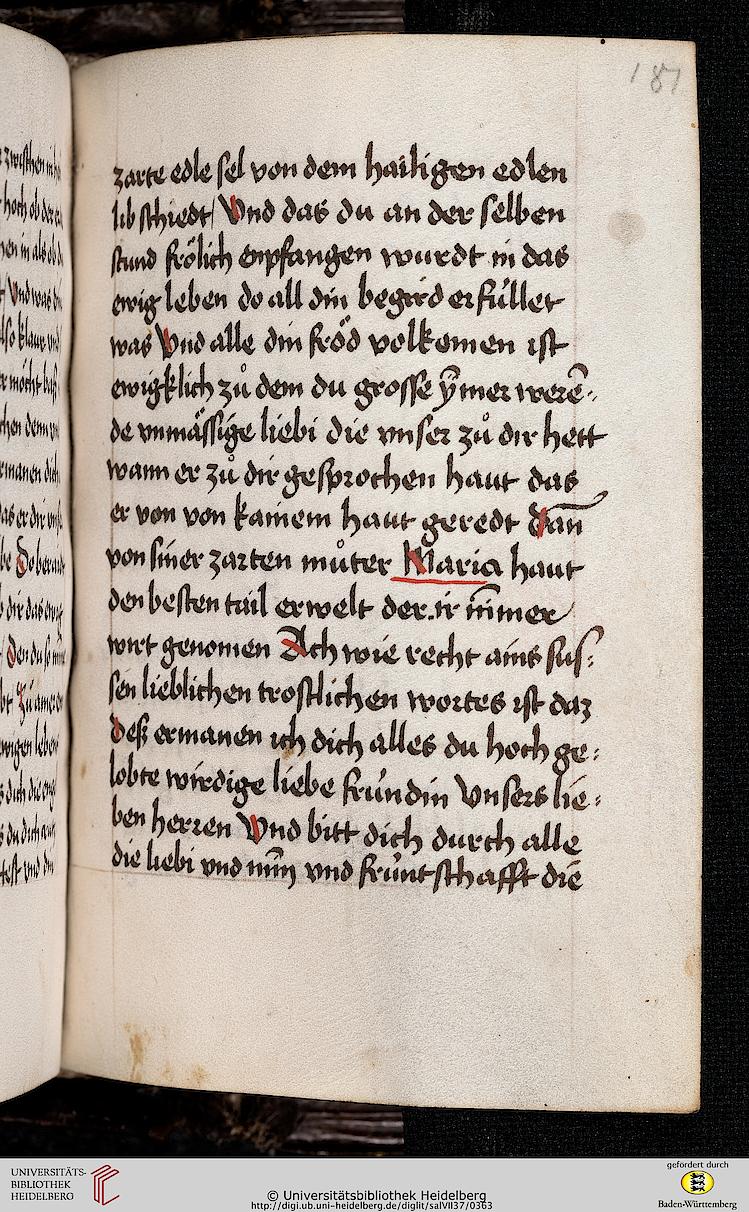 181
zarte edle sel von dem hailigen edlen
lib schiedt / Vnd das du an der selben
stund frölich enpfangen wurdt in das
ewig leben do all din begird erfüllet
was Vnd alle din fröd volkomen ist
ewigklich zů dem du grosse ÿmer werē-
de vnmässige liebi die vnser zů dir hett
wann er zů dir gesprochen haut das
er von von kainem haut geredt dañ
von siner zarten můter Maria haut
den besten tail erwelt der ir nīmer
wirt genomen Ach wie recht ains sus-
sen lieblichen trostlichen wortes ist daz
deß ermanen ich dich alles du hoch ge-
lobte wirdige liebe fründin Vnsers lie-
ben herren Vnd bitt dich durch alle
die liebi vnd miñ vnd früntschafft die
UNIVERSITÄTS-
BIBLIOTHEK
HEIDELBERG
© Universitätsbibliothek Heidelberg
http://digi.ub.uni-heidelberg.de/diglit/salVII37/0363
gefördert durch
Baden-Württemberg